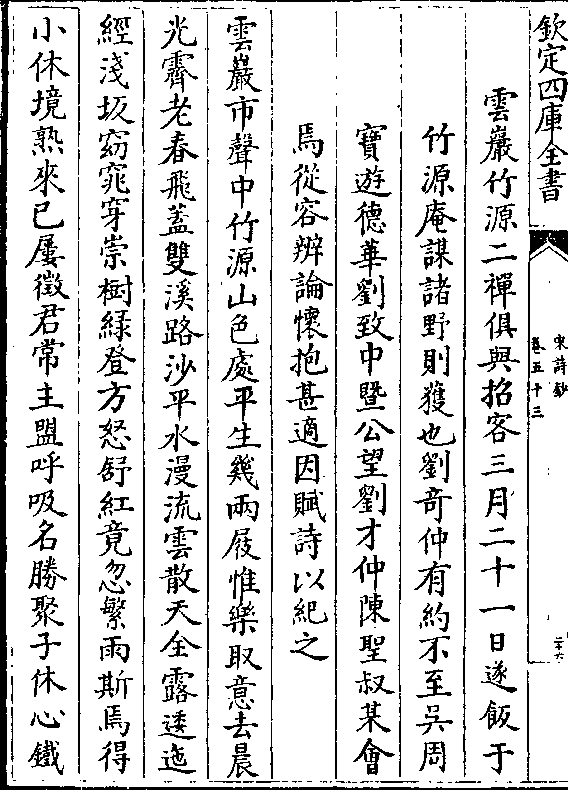 欽定四庫全書
宋詩鈔
卷五十三
二十六
雲巖竹源二禪俱興招客三月二十一日遂飯于
竹源庵謀諸野則獲也劉竒仲有約不至吳周
寶遊德華劉致中暨公望劉才仲陳聖叔某會
焉從容辨論懷抱甚適因賦詩以紀之
雲巖市聲中竹源山色處平生幾兩屐惟樂取意去晨
光霽老春飛蓋雙溪路沙平水漫流雲散天全露逶迤
經淺坂窈窕穿崇樹綠登方怒舒紅竟忽繁雨斯焉得
小休境熟來已屢徵君常主盟呼吸名勝聚子休心鐵